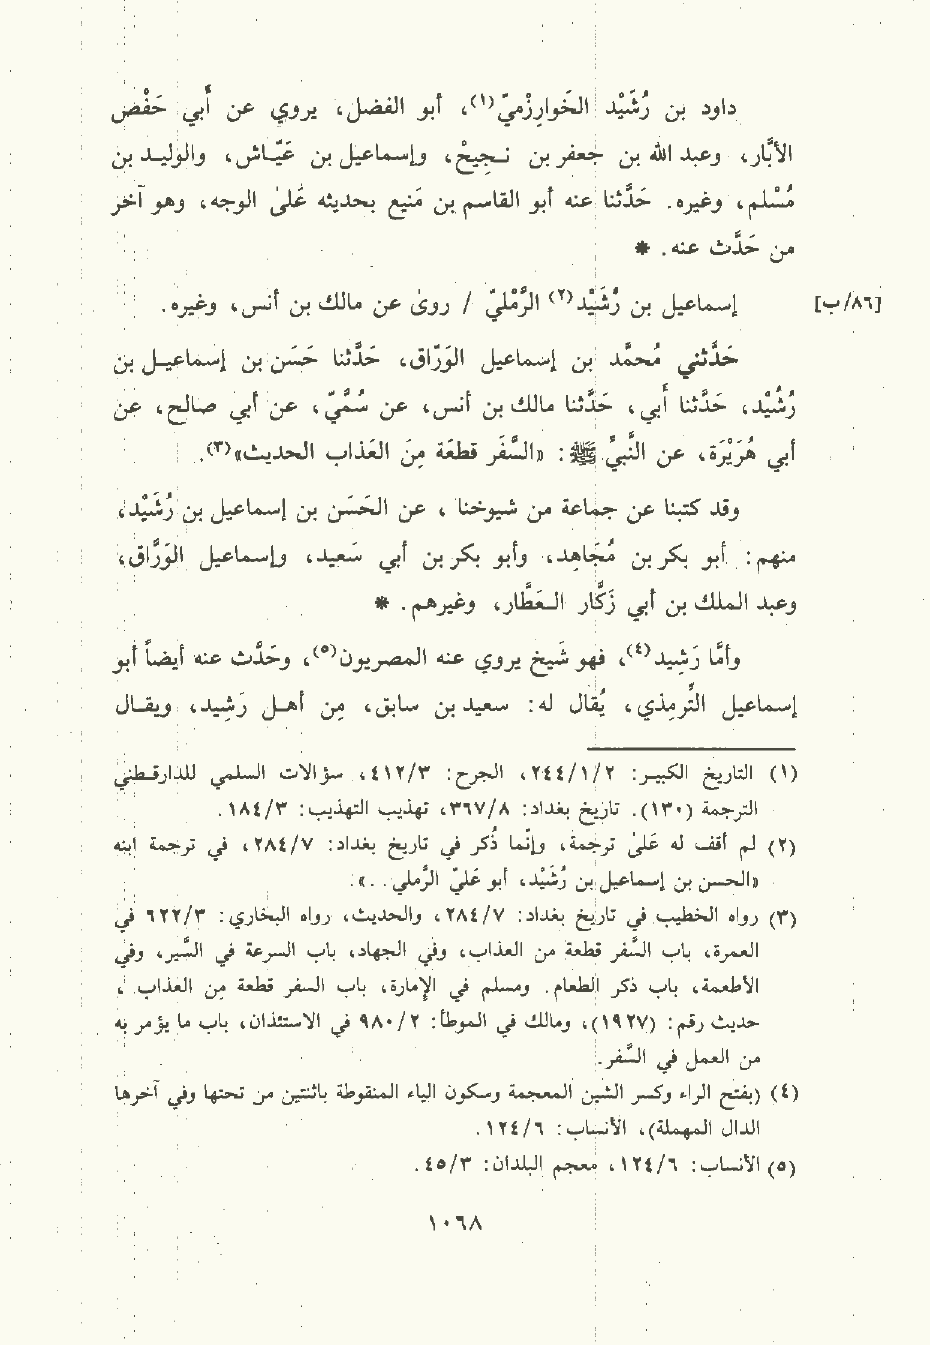 داود بن رُشَيْد الخَوارِزْميّ(١)، أبو الفضل، يروي عن أَبي حَفْص
الأبَّار، وعبد الله بن جعفر بن نَجِيحْ، وإسماعيل بن عَيّاش، والوليد بن
مُسْلم، وغيره. حَدَّثنا عنه أبو القاسم بن مَنيع بحديثه عَلىٰ الوجه، وهو آخر
من حَدَّث عنه. *
[٨٦/ب]
إسماعيل بن رُشَيْد(٢) الرَّمْليّ / روىٰ عن مالك بن أنس، وغيره.
حَدَّثني مُحمَّد بن إسماعيل الوَرّاق، حَدَّثنا حَسَن بن إسماعيل بن
رُشَيْد، حَدَّثنا أَبي، حَدَّثنا مالك بن أنس، عن سُمَّيّ، عن أبي صالح، عن
أبي هُرَيْرَة، عن النَّبيِّ ﷺ: «السَّفَر قطعَة مِنَ العَذاب الحديث»(٣).
وقد كتبنا عن جماعة من شيوخنا، عن الحَسَن بن إسماعيل بن رُشَيْد،
منهم: أبو بكر بن مُجَاهِد، وأبو بكر بن أبي سَعيد، وإسماعيل الوَرَّاق،
وعبد الملك بن أبي زَكَّار العَطَّار، وغيرهم. *
وأمَّا رَشِيد(٤)، فهو شَيخ يروي عنه المصريون(٥)، وحَدَّث عنه أيضاً أبو
إسماعيل التِّرمِذي، يُقال له: سعيد بن سابق، مِن أهل رَشِيد، ويقال
(١) التاريخ الكبير: ٢٤٤/١/٢، الجرح: ٤١٢/٣، سؤالات السلمي للدارقطني
الترجمة (١٣٠). تاريخ بغداد: ٣٦٧/٨، تهذيب التهذيب: ١٨٤/٣.
(٢) لم أقف له عَلىٰ ترجمة، وإنّما ذُكر في تاريخ بغداد: ٢٨٤/٧، في ترجمة ابنه
«الحسن بن إسماعيل بن رُشَيْد، أبو عَليّ الرَّملي. .».
(٣) رواه الخطيب في تاريخ بغداد: ٢٨٤/٧، والحديث، رواه البخاري: ٦٢٢/٣ في
العمرة، باب السَّفر قطعة من العذاب، وفي الجهاد، باب السرعة في السَّير، وفي
الأطعمة، باب ذكر الطعام. ومسلم في الإمارة، باب السفر قطعة مِن العذاب،
حديث رقم: (١٩٢٧)، ومالك في الموطأ: ٩٨٠/٢ في الاستئذان، باب ما يؤمر به
من العمل في السَّفر.
(٤) (بفتح الراء وكسر الشين المعجمة وسكون الياء المنقوطة باثنتين من تحتها وفي آخرها
الدال المهملة)، الأنساب: ١٢٤/٦.
(٥) الأنساب: ١٢٤/٦، معجم البلدان: ٤٥/٣.
١٠٦٨